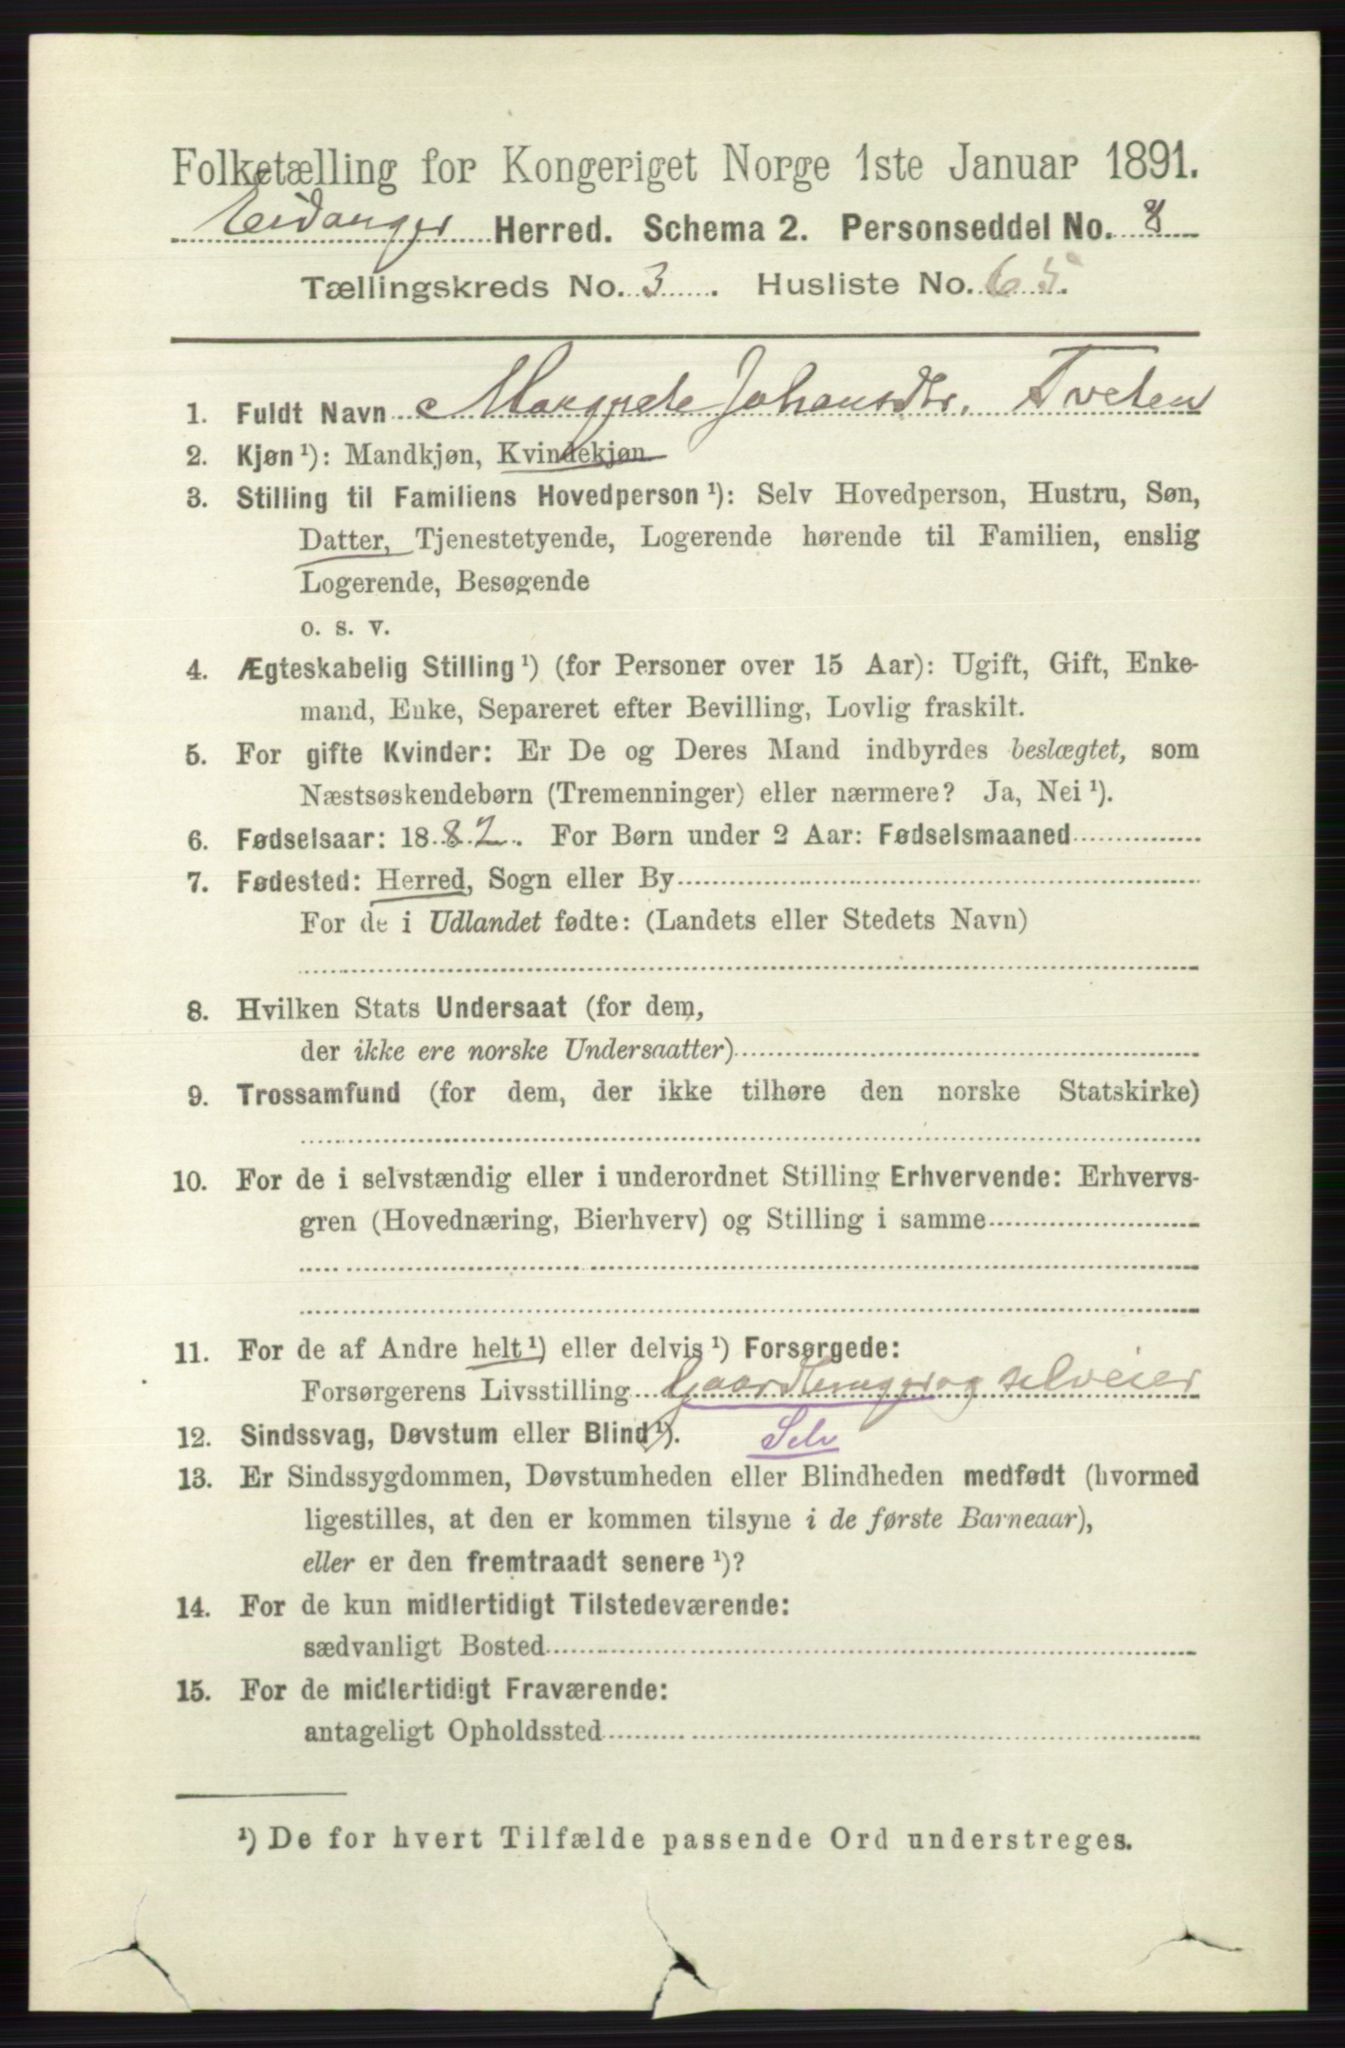 Folketælling for Kongeriget Norge 1ste Januar 1891.
Eidanger Herred. Schema 2. Personseddel No. 8
Tællingskreds No. 3. Husliste No. 65.
1. Fuldt Navn Margrete Johansdtr. Tveten
2. Kjøn ¹): Mandkjøn, Kvindekjøn
3. Stilling til Familiens Hovedperson ¹): Selv Hovedperson, Hustru, Søn,
Datter, Tjenestetyende, Logerende hørende til Familien, enslig
Logerende, Besøgende
o. s. v.
4. Ægteskabelig Stilling ¹) (for Personer over 15 Aar): Ugift, Gift, Enke-
mand, Enke, Separeret efter Bevilling, Lovlig fraskilt.
5. For gifte Kvinder: Er De og Deres Mand indbyrdes beslægtet, som
Næstsøskendebørn (Tremenninger) eller nærmere? Ja, Nei ¹).
6. Fødselsaar: 1882. For Børn under 2 Aar: Fødselsmaaned
7. Fødested: Herred, Sogn eller By
For de i Udlandet fødte: (Landets eller Stedets Navn)
8. Hvilken Stats Undersaat (for dem,
der ikke ere norske Undersaatter)
9. Trossamfund (for dem, der ikke tilhøre den norske Statskirke)
10. For de i selvstændig eller i underordnet Stilling Erhvervende: Erhvervs-
gren (Hovednæring, Bierhverv) og Stilling i samme
11. For de af Andre helt ¹) eller delvis ¹) Forsørgede:
Forsørgerens Livsstilling Gaardbruger og selveier
12. Sindssvag, Døvstum eller Blind ¹). Selv
13. Er Sindssygdommen, Døvstumheden eller Blindheden medfødt (hvormed
ligestilles, at den er kommen tilsyne i de første Barneaar),
eller er den fremtraadt senere ¹)?
14. For de kun midlertidigt Tilstedeværende:
sædvanligt Bosted
15. For de midlertidigt Fraværende:
antageligt Opholdssted
¹) De for hvert Tilfælde passende Ord understreges.